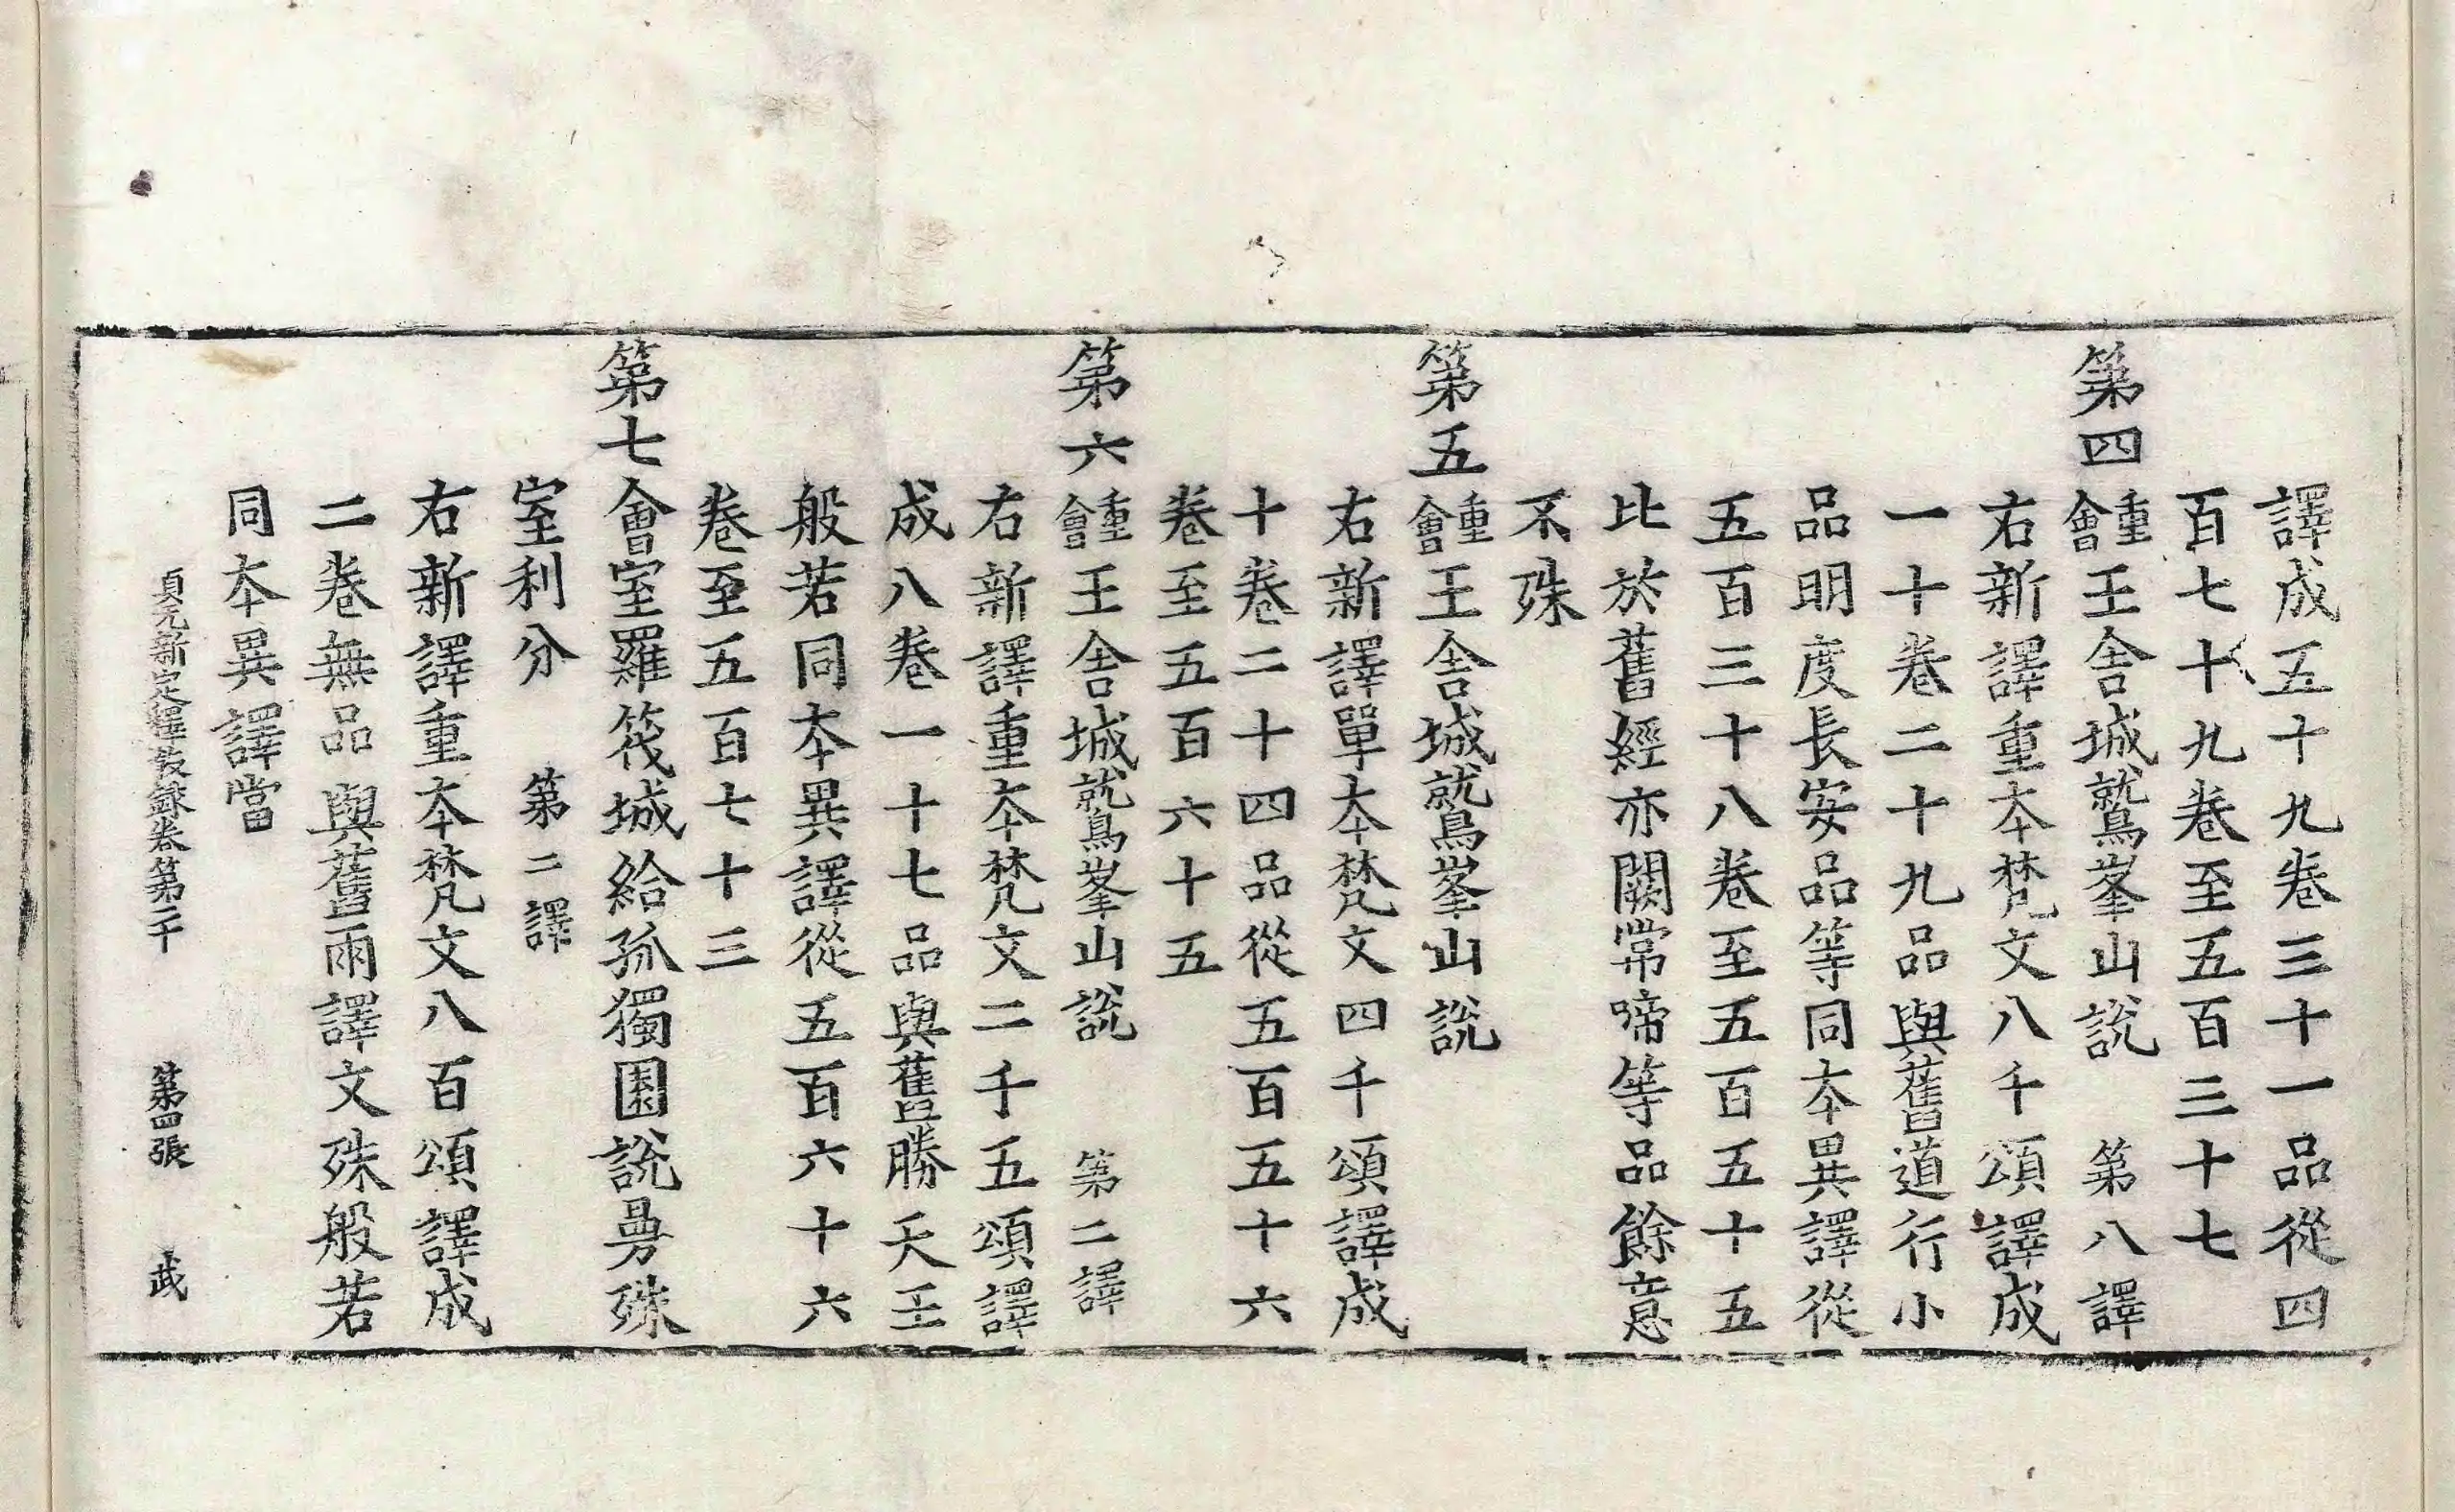 譯成五十九卷三十一品從四
百七十九卷至五百三十七
第四重會王舍城鷲峯山說　第八譯
右新譯重本梵文八千頌譯成
一十卷二十九品與舊道行小
品明度長安品等同本異譯從
五百三十八卷至五百五十五
比於舊經亦闕常啼等品餘意
不殊
第五重會王舍城鷲峯山說
右新譯單本梵文四千頌譯成
十卷二十四品從五百五十六
卷至五百六十五
第六重會王舍城鷲峯山說　第二譯
右新譯重本梵文二千五頌譯
成八卷一十七品與舊勝天王
般若同本異譯從五百六十六
卷至五百七十三
第七會室羅筏城給孤獨園說曼殊
室利分　第二譯
右新譯重本梵文八百頌譯成
二卷無品與舊兩譯文殊般若
同本異譯當
貞元新定釋教錄卷第二十　第四張　武